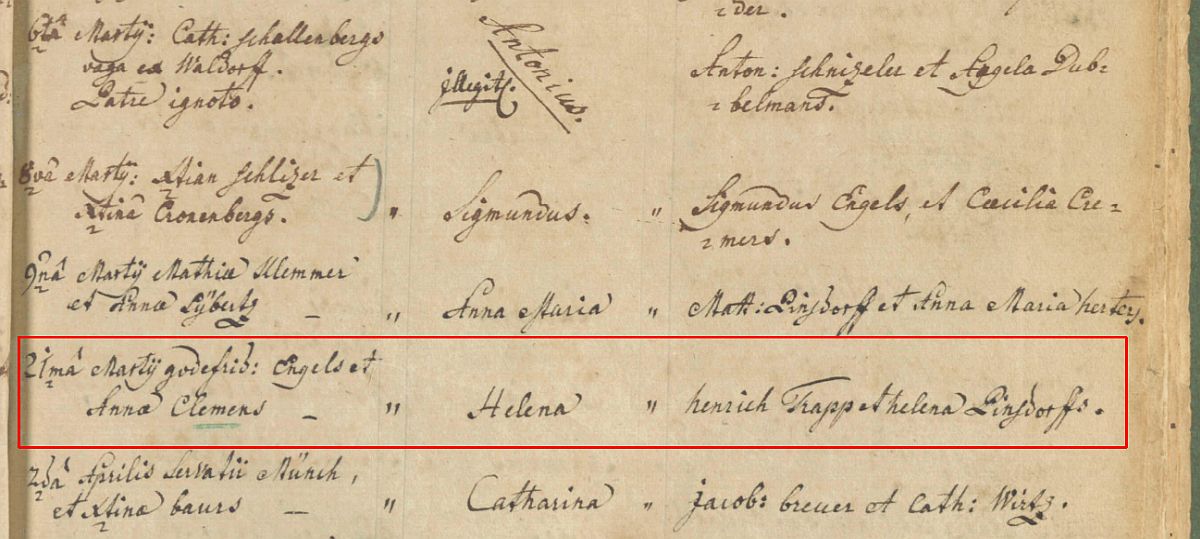 :der.
6tâ Martÿ: Cath: schallenbergs
vaga ex Waldorff.
Patre ignoto.
Antonius.
illegit.
Anton: schnizeler et Angela Dub:
:belmans.
8vâ Martÿ: Xtian schlizer et
Xtinâ Cronenbergs.
" Sigmundus. " Sigmundus Engels, et Cæcilia Cre:
:mers.
9nâ Martÿ Mathiæ Klemmer
et Annæ Lÿberts — " Anna Maria " Matt: Linsdorff et Anna Maria herters.
21mâ Martÿ godefrid: Engels et
Annæ Clemens — " Helena " henrich Trapp et helena Linsdorffs.
2dâ Aprilis Servatii Münch,
et Xtinæ baurs — " Catharina " jacob: breuer et Cath: Wirtz.